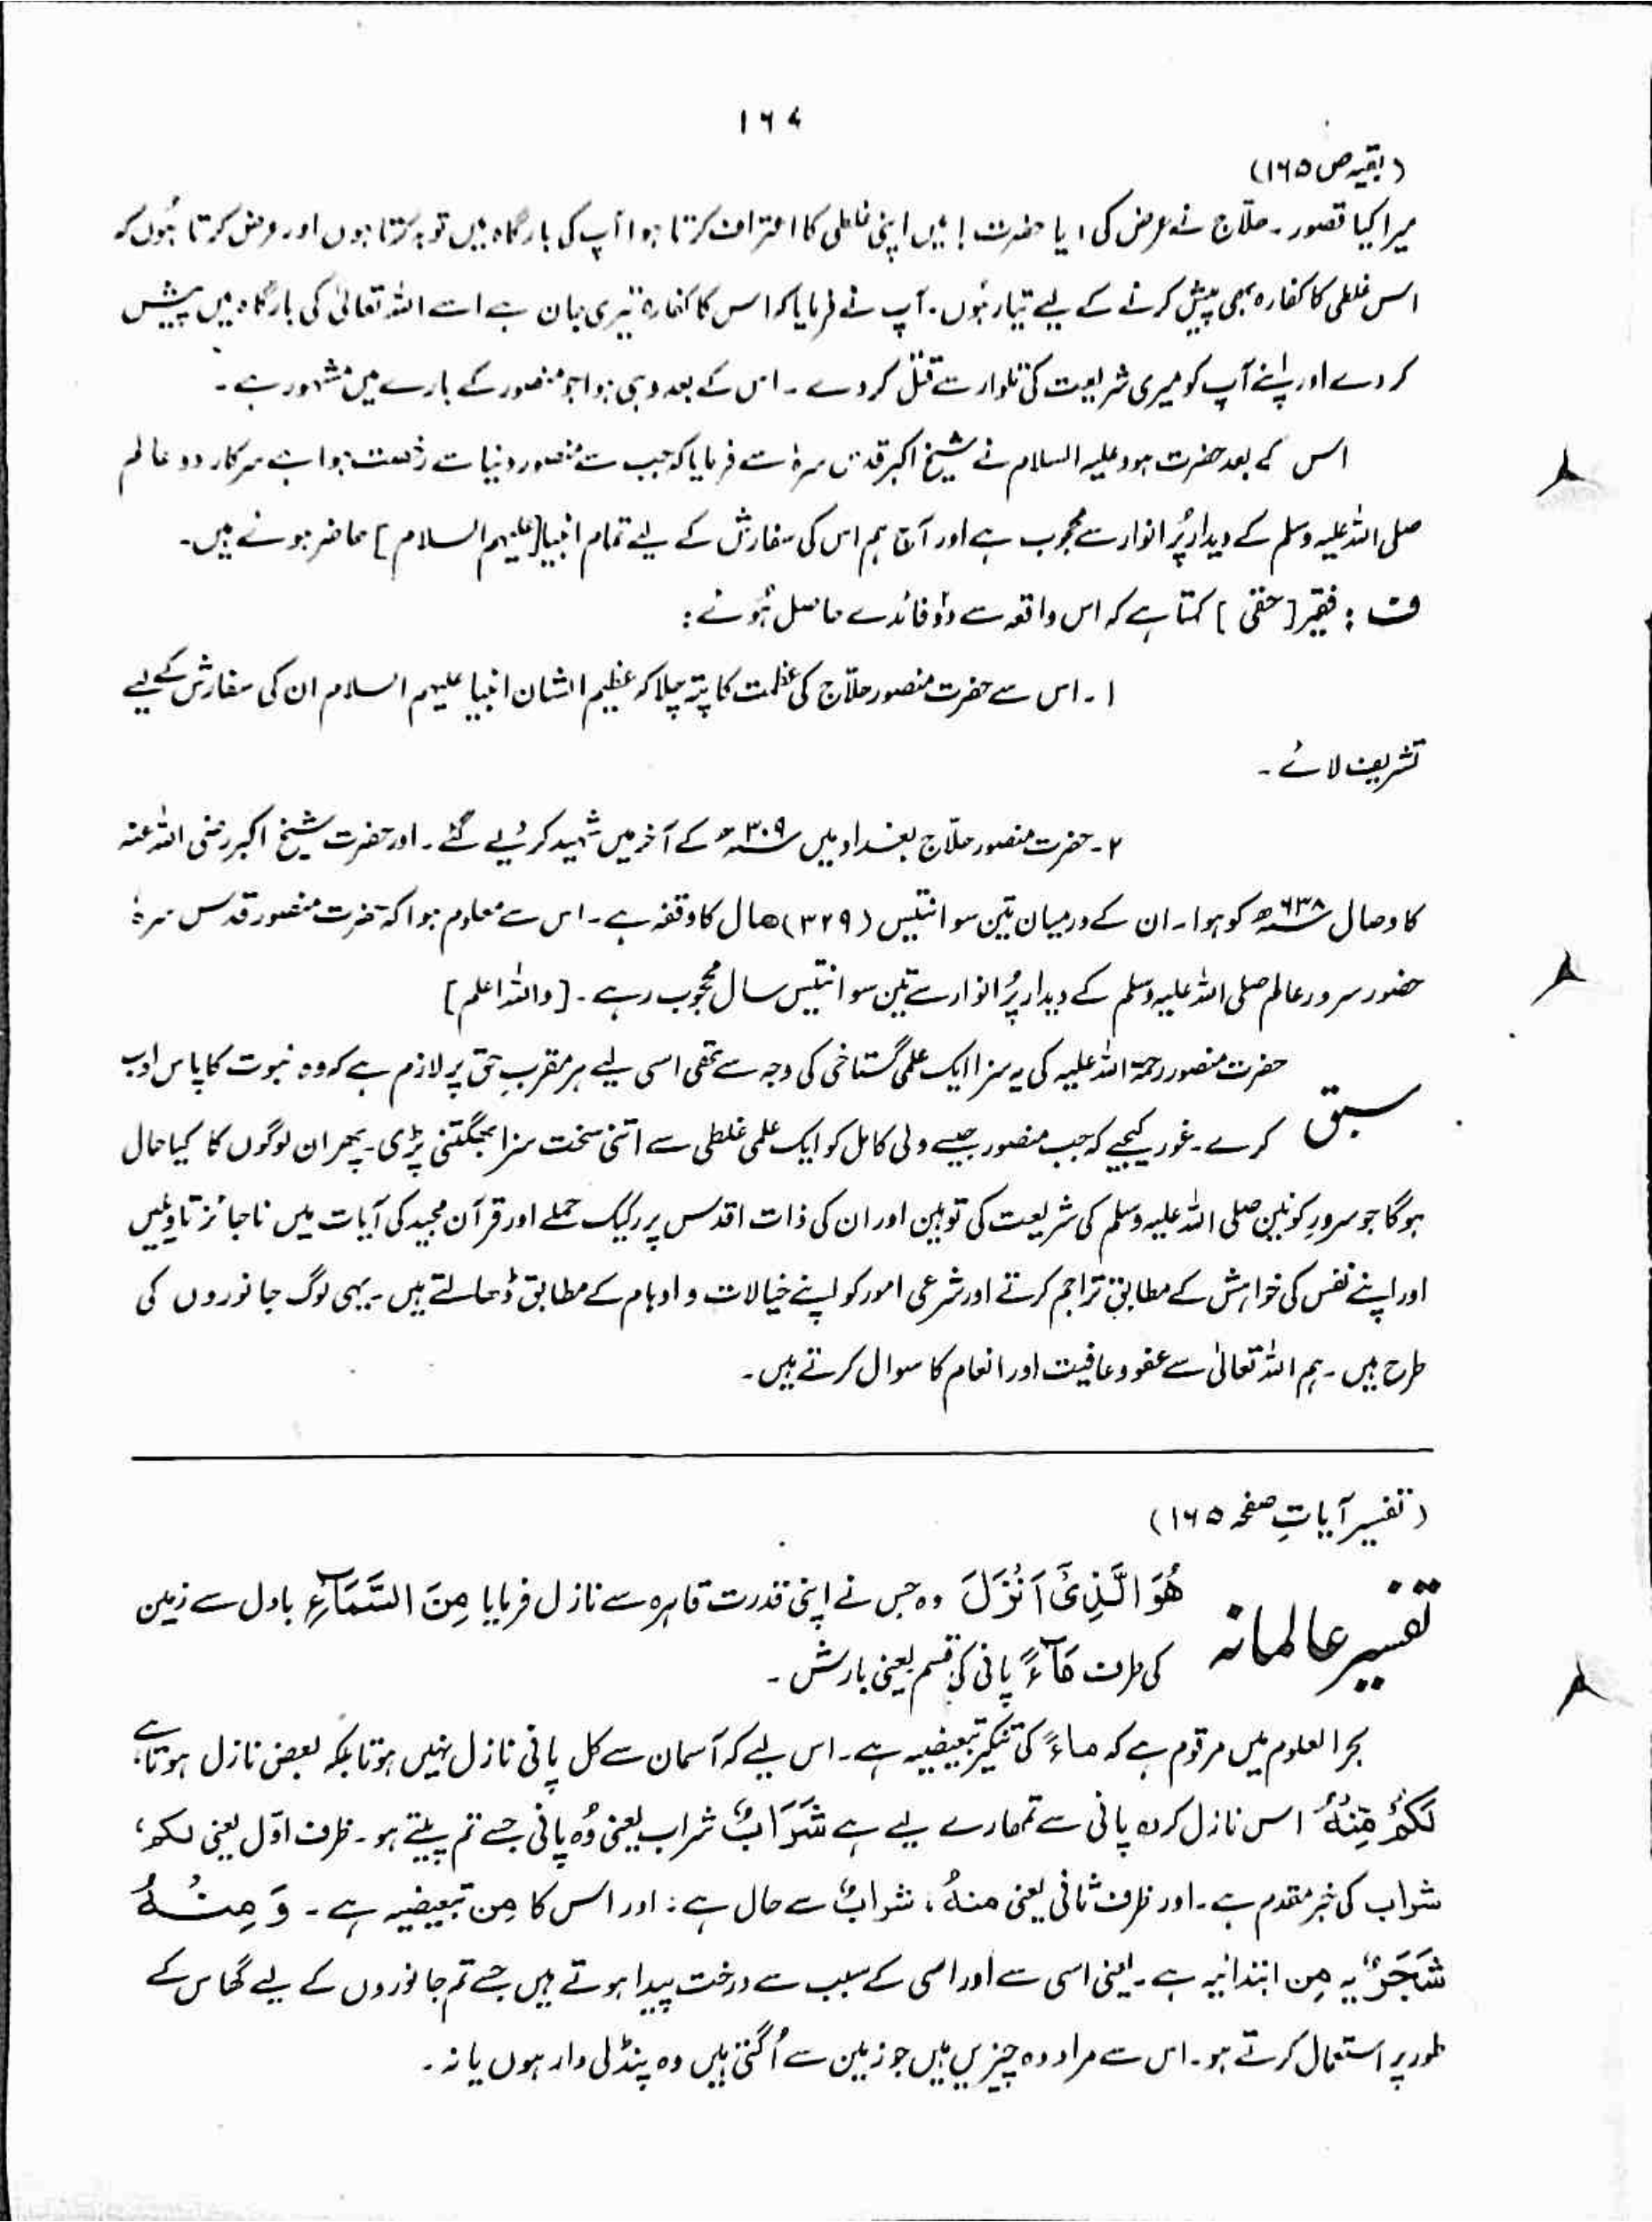 ۱۶۷
(بقیہ ص ۱۶۵)
میرا کیا قصور۔ حلّاج نے عرض کی، یا حضرت! میں اپنی غلطی کا اعتراف کرتا ہوا آپ کی بارگاہ میں توبہ کرتا ہوں اور عرض کرتا ہُوں کہ
اس غلطی کا کفارہ بھی پیش کرنے کے لیے تیار ہُوں۔ آپ نے فرمایا کہ اس کا کفارہ تیری جان ہے اسے اللہ تعالیٰ کی بارگاہ میں پیش
کر دے اور اپنے آپ کو میری شریعت کی تلوار سے قتل کر دے۔ اس کے بعد وہی ہوا جو منصور کے بارے میں مشہور ہے۔
اس کے بعد حضرت ہود علیہ السلام نے شیخ اکبر قدس سرہٗ سے فرمایا کہ جب سے منصور دنیا سے رخصت ہوا ہے سرکار دو عالم
صلی اللہ علیہ وسلم کے دیدار پُر انوار سے محجوب ہے اور آج ہم اس کی سفارش کے لیے تمام انبیا [علیہم السلام] حاضر ہوئے ہیں۔
ف : فقیر [حقی] کہتا ہے کہ اس واقعہ سے دو فائدے حاصل ہُوئے:
۱۔ اس سے حضرت منصور حلّاج کی عظمت کا پتہ چلا کہ عظیم الشان انبیا علیہم السلام ان کی سفارش کے لیے
تشریف لائے۔
۲۔ حضرت منصور حلّاج بغداد میں ۳۰۹ھ کے آخر میں شہید کر دیے گئے۔ اور حضرت شیخ اکبر رضی اللہ عنہ
کا وصال ۶۳۸ھ کو ہوا۔ ان کے درمیان تین سو انتیس (۳۲۹) سال کا وقفہ ہے۔ اس سے معلوم ہوا کہ حضرت منصور قدس سرہٗ
حضور سرور عالم صلی اللہ علیہ وسلم کے دیدار پُر انوار سے تین سو انتیس سال محجوب رہے۔ [واللہ اعلم]
حضرت منصور رحمۃ اللہ علیہ کی یہ سزا ایک علمی گستاخی کی وجہ سے تھی اسی لیے ہر مقربِ حق پر لازم ہے کہ وہ نبوت کا پاس ادب
سبق کرے۔ غور کیجیے کہ جب منصور جیسے ولی کامل کو ایک علمی غلطی سے اتنی سخت سزا بھگتنی پڑی۔ پھر ان لوگوں کا کیا حال
ہوگا جو سرورِ کونین صلی اللہ علیہ وسلم کی شریعت کی توہین اور ان کی ذات اقدس پر رکیک حملے اور قرآن مجید کی آیات میں ناجائز تاویلیں
اور اپنے نفس کی خواہش کے مطابق تراجم کرتے اور شرعی امور کو اپنے خیالات و اوہام کے مطابق ڈھالتے ہیں۔ یہی لوگ جانوروں کی
طرح ہیں۔ ہم اللہ تعالیٰ سے عفو و عافیت اور انعام کا سوال کرتے ہیں۔
(تفسیر آیاتِ صفحہ ۱۶۵)
تفسیر عالمانہ هُوَ الَّذِیْٓ اَنْزَلَ وہ جس نے اپنی قدرت قاہرہ سے نازل فرمایا مِنَ السَّمَآءِ بادل سے زمین
کی طرف مَآءً پانی کی قسم یعنی بارش۔
بحر العلوم میں مرقوم ہے کہ ماءً کی تنکیر تبعیضیہ ہے۔ اس لیے کہ آسمان سے کل پانی نازل نہیں ہوتا بلکہ بعض نازل ہوتا ہے
لَكُمْ مِّنْهُ اس نازل کردہ پانی سے تمہارے لیے ہے شَرَابٌ شراب یعنی وُہ پانی جسے تم پیتے ہو۔ ظرف اوّل یعنی لکم،
شراب کی خبر مقدم ہے۔ اور ظرف ثانی یعنی منہُ، شرابٌ سے حال ہے؛ اور اس کا مِن تبعیضیہ ہے۔ وَ مِنْهُ
شَجَرٌ یہ مِن ابتدائیہ ہے۔ یعنی اسی سے اور اسی کے سبب سے درخت پیدا ہوتے ہیں جسے تم جانوروں کے لیے گھاس کے
طور پر استعمال کرتے ہو۔ اس سے مراد وہ چیزیں ہیں جو زمین سے اُگتی ہیں وہ پنڈلی دار ہوں یا نہ۔